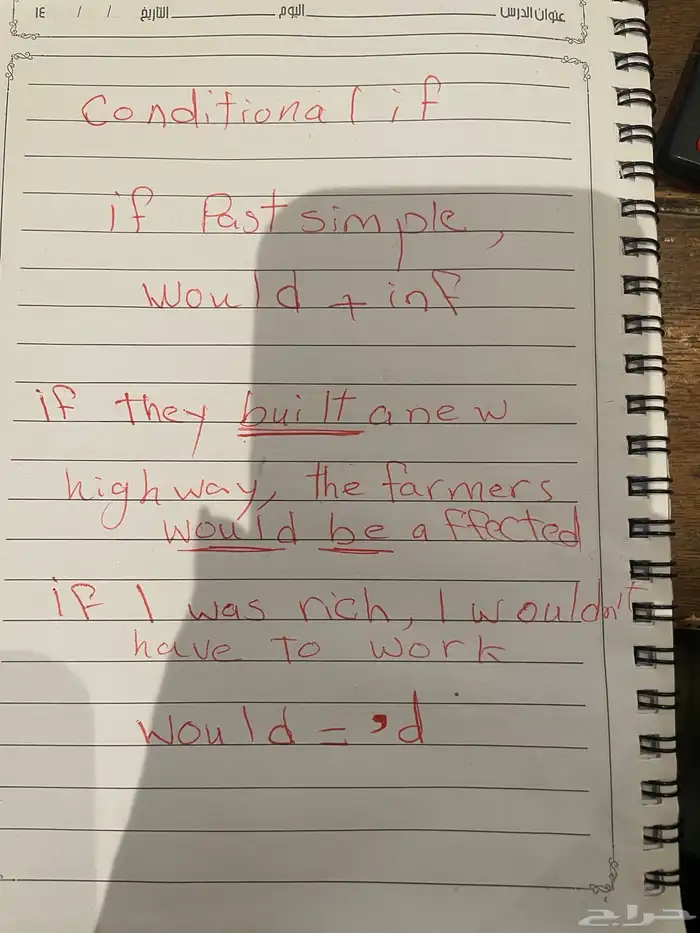 عنوان الدرس اليوم التاريخ / / ١٤
Conditional if
if Past simple,
would + inf
if they built a new
highway, the farmers
would be affected
if I was rich, I wouldn't
have to work
would = 'd
حراج